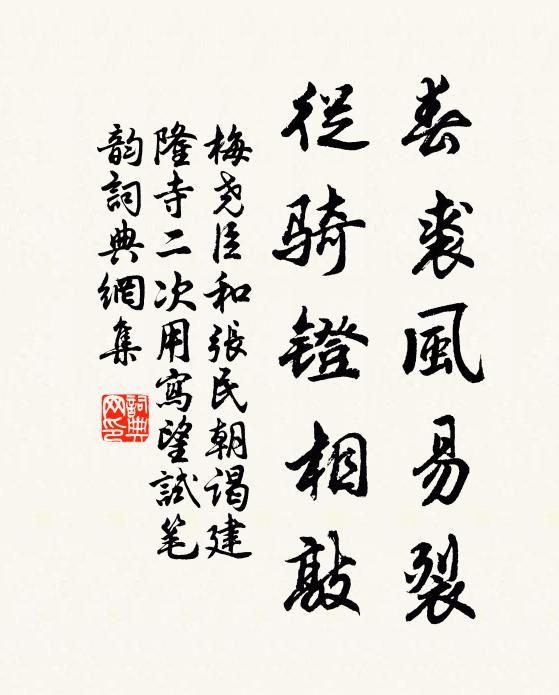 春裘風易裂
從騎镫相敲
梅堯臣和張民朝谒建
隆寺二次用寫望試笔
韵詞典網集
詞典
网印